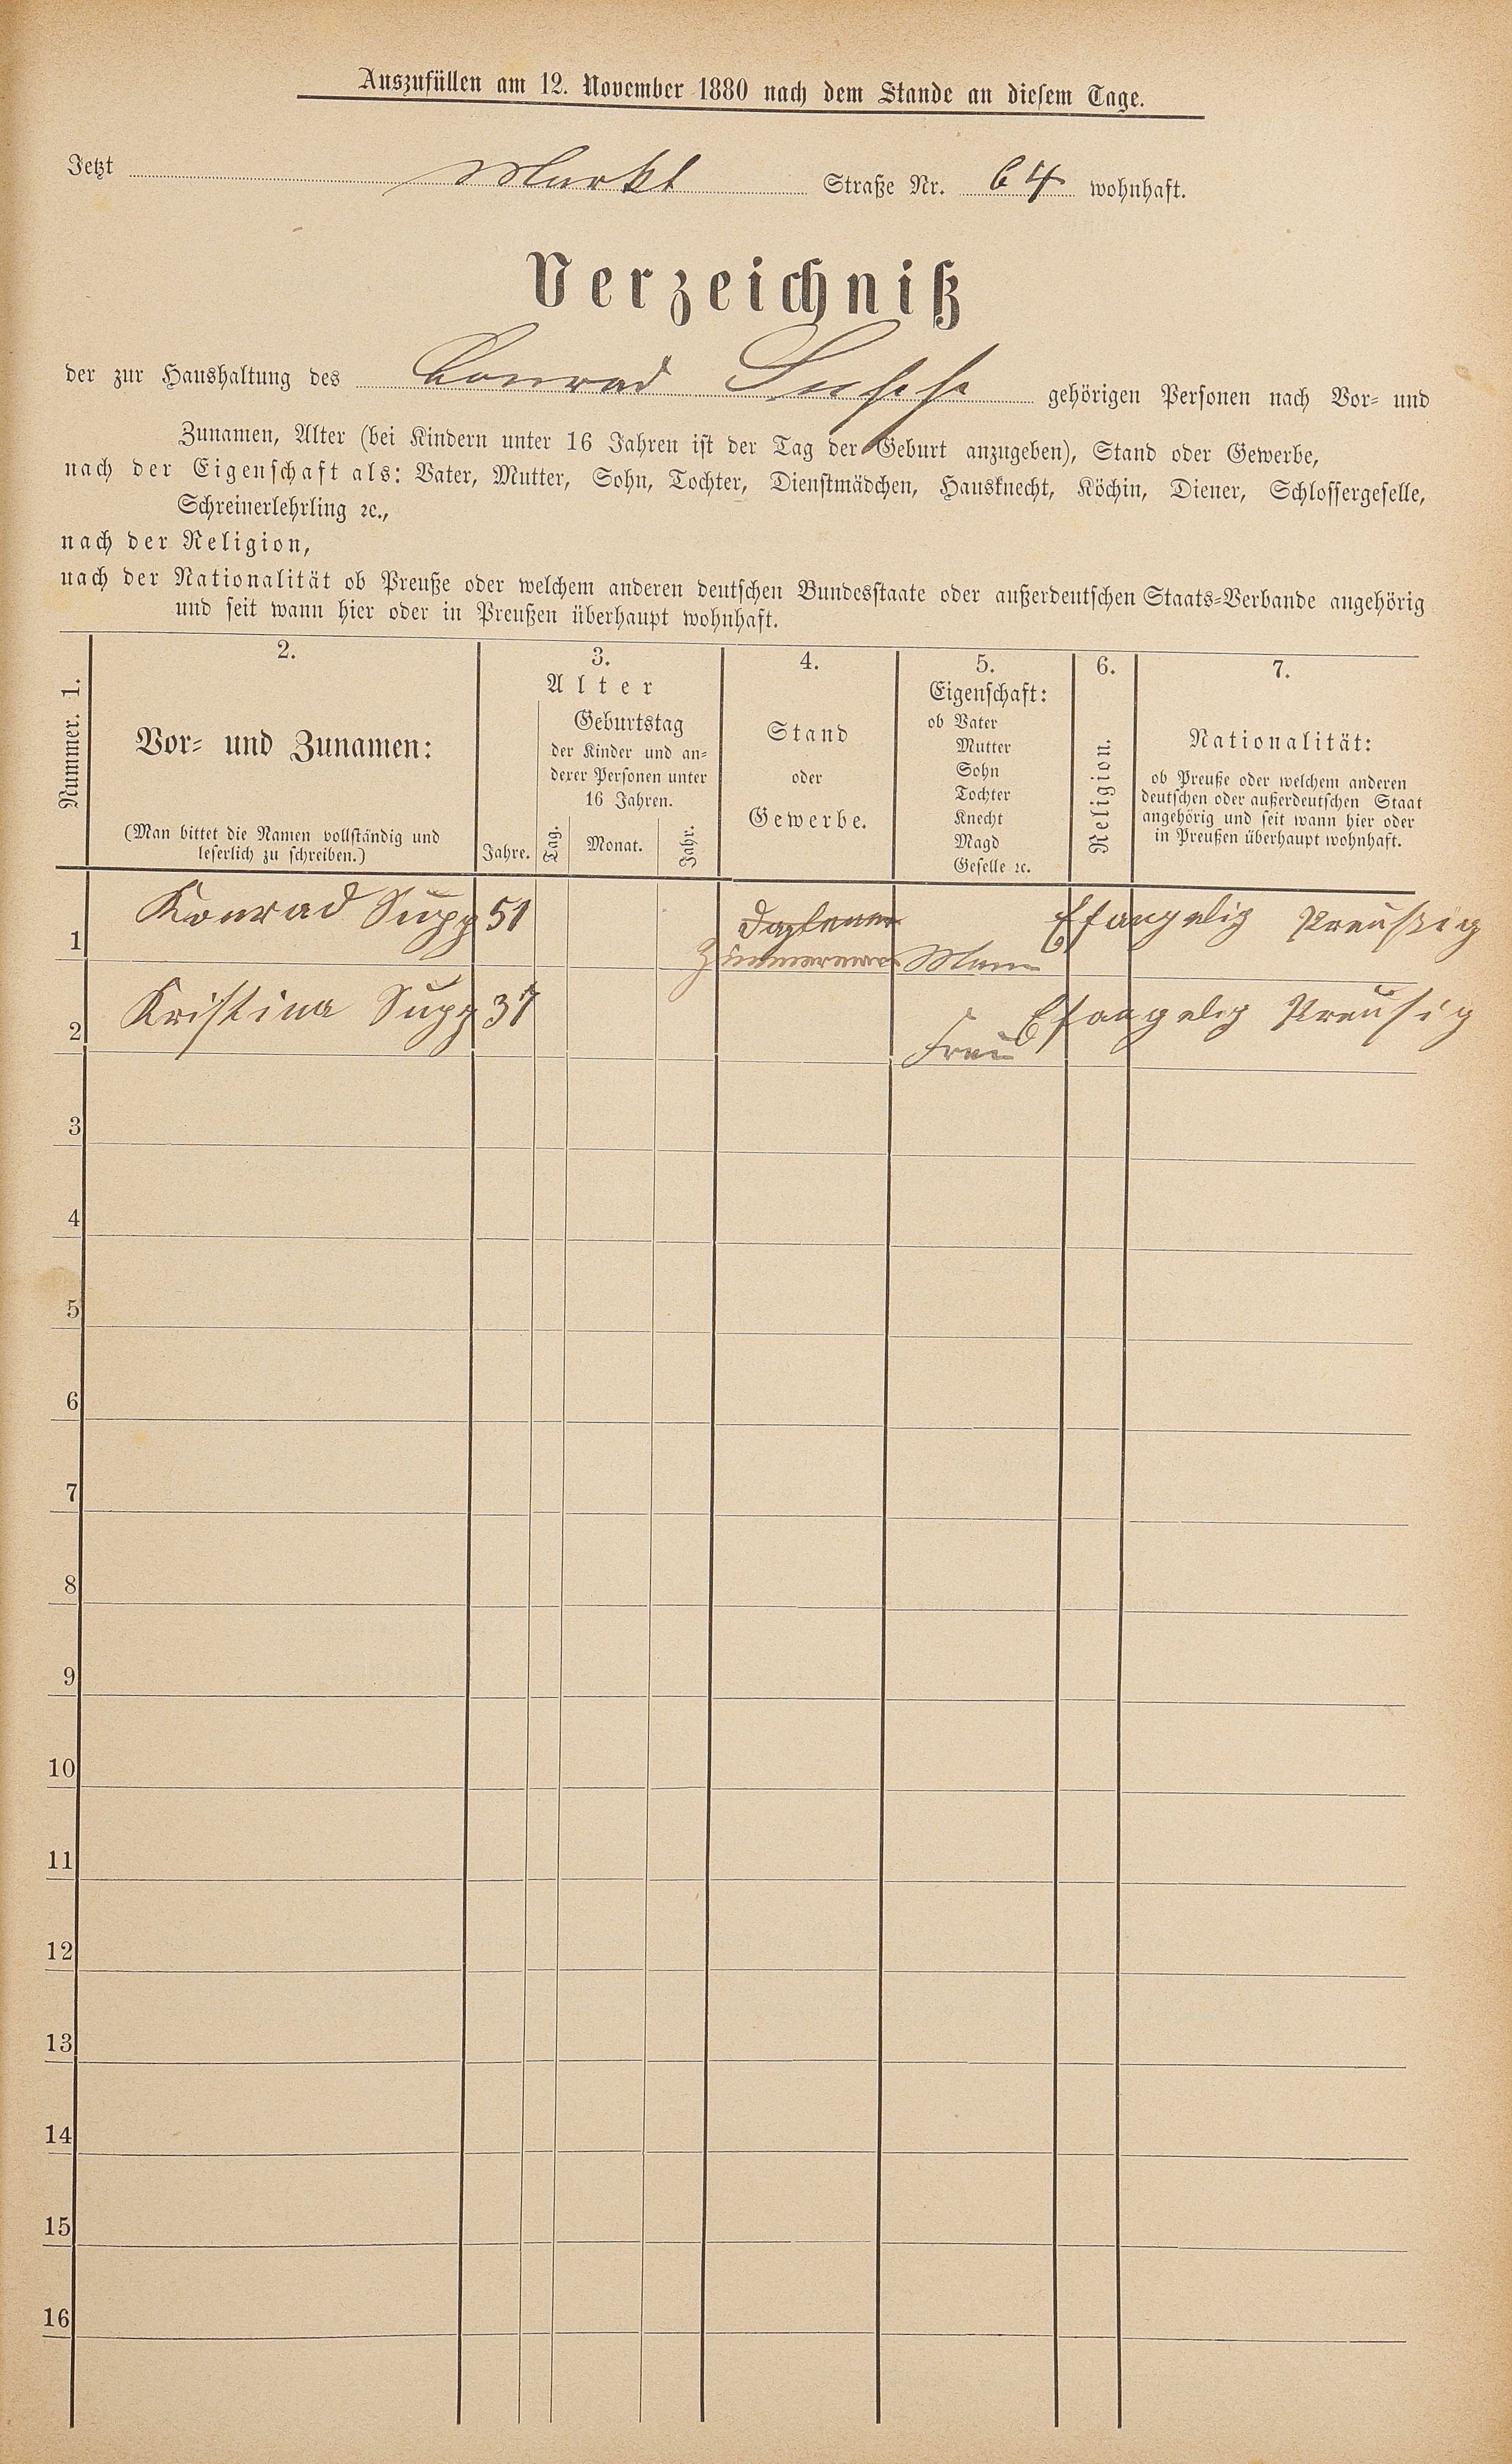 Auszufüllen am 12. November 1880 nach dem Stande an diesem Tage.
Jetzt Markt Straße Nr. 64 wohnhaft.
Verzeichniß
der zur Haushaltung des Conrad Supp gehörigen Personen nach Vor- und
Zunamen, Alter (bei Kindern unter 16 Jahren ist der Tag der Geburt anzugeben), Stand oder Gewerbe,
nach der Eigenschaft als: Vater, Mutter, Sohn, Tochter, Dienstmädchen, Hausknecht, Köchin, Diener, Schlossergeselle,
Schreinerlehrling ꝛc.,
nach der Religion,
nach der Nationalität ob Preuße oder welchem anderen deutschen Bundesstaate oder außerdeutschen Staats-Verbande angehörig
und seit wann hier oder in Preußen überhaupt wohnhaft.
Nummer. 1.
2.
Vor- und Zunamen:
(Man bittet die Namen vollständig und
leserlich zu schreiben.)
3.
Alter
Jahre.
Geburtstag
der Kinder und an-
derer Personen unter
16 Jahren.
Tag.
Monat.
Jahr.
4.
Stand
oder
Gewerbe.
5.
Eigenschaft:
ob Vater
Mutter
Sohn
Tochter
Knecht
Magd
Geselle ꝛc.
6.
Religion.
7.
Nationalität:
ob Preuße oder welchem anderen
deutschen oder außerdeutschen Staat
angehörig und seit wann hier oder
in Preußen überhaupt wohnhaft.
1 Konrad Supp 51 Mann Efangelig Preußig
2 Kristina Supp 37 Frau Efangelig Preusig
3
4
5
6
7
8
9
10
11
12
13
14
15
16